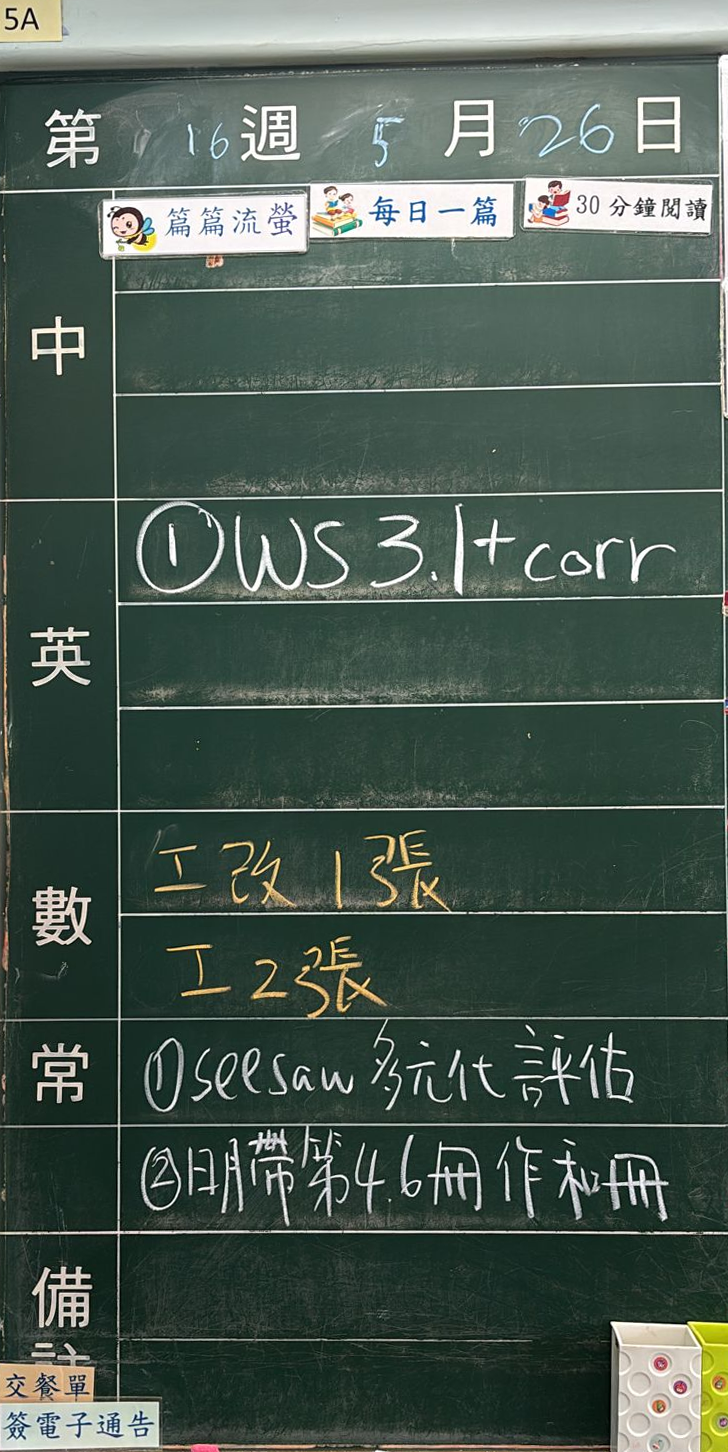 5A
第16週5月26日
篇篇流螢 每日一篇 30分鐘閱讀
中
英 ①WS 3.1+corr
數 工改1張
工2張
常 ①seesaw多元代評估
②明帶第4.6冊作和冊
備註
交餐單
簽電子通告